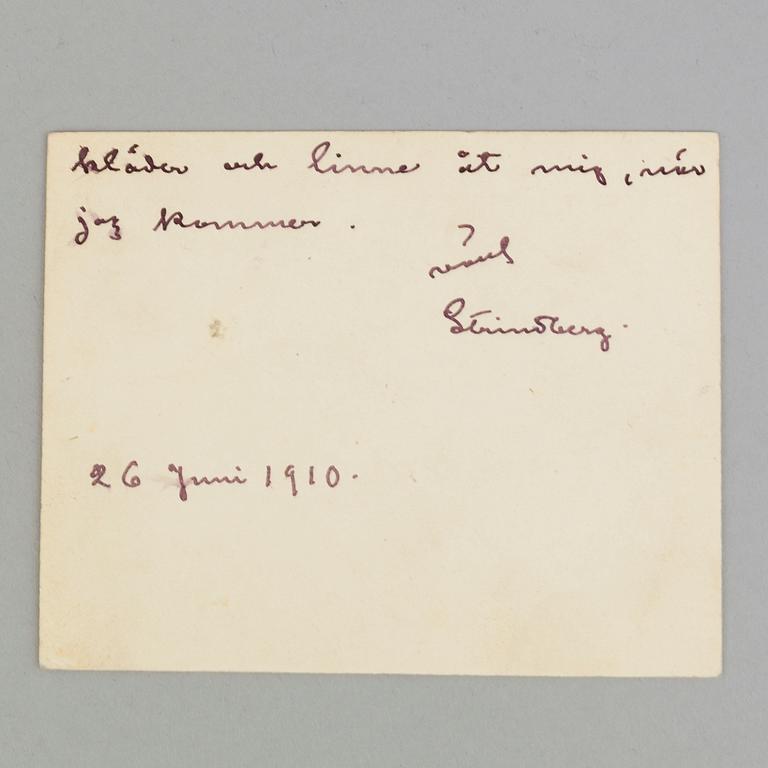 kläder och linne åt mig, när
jag kommer.
Strindberg.
26 Juni 1910.